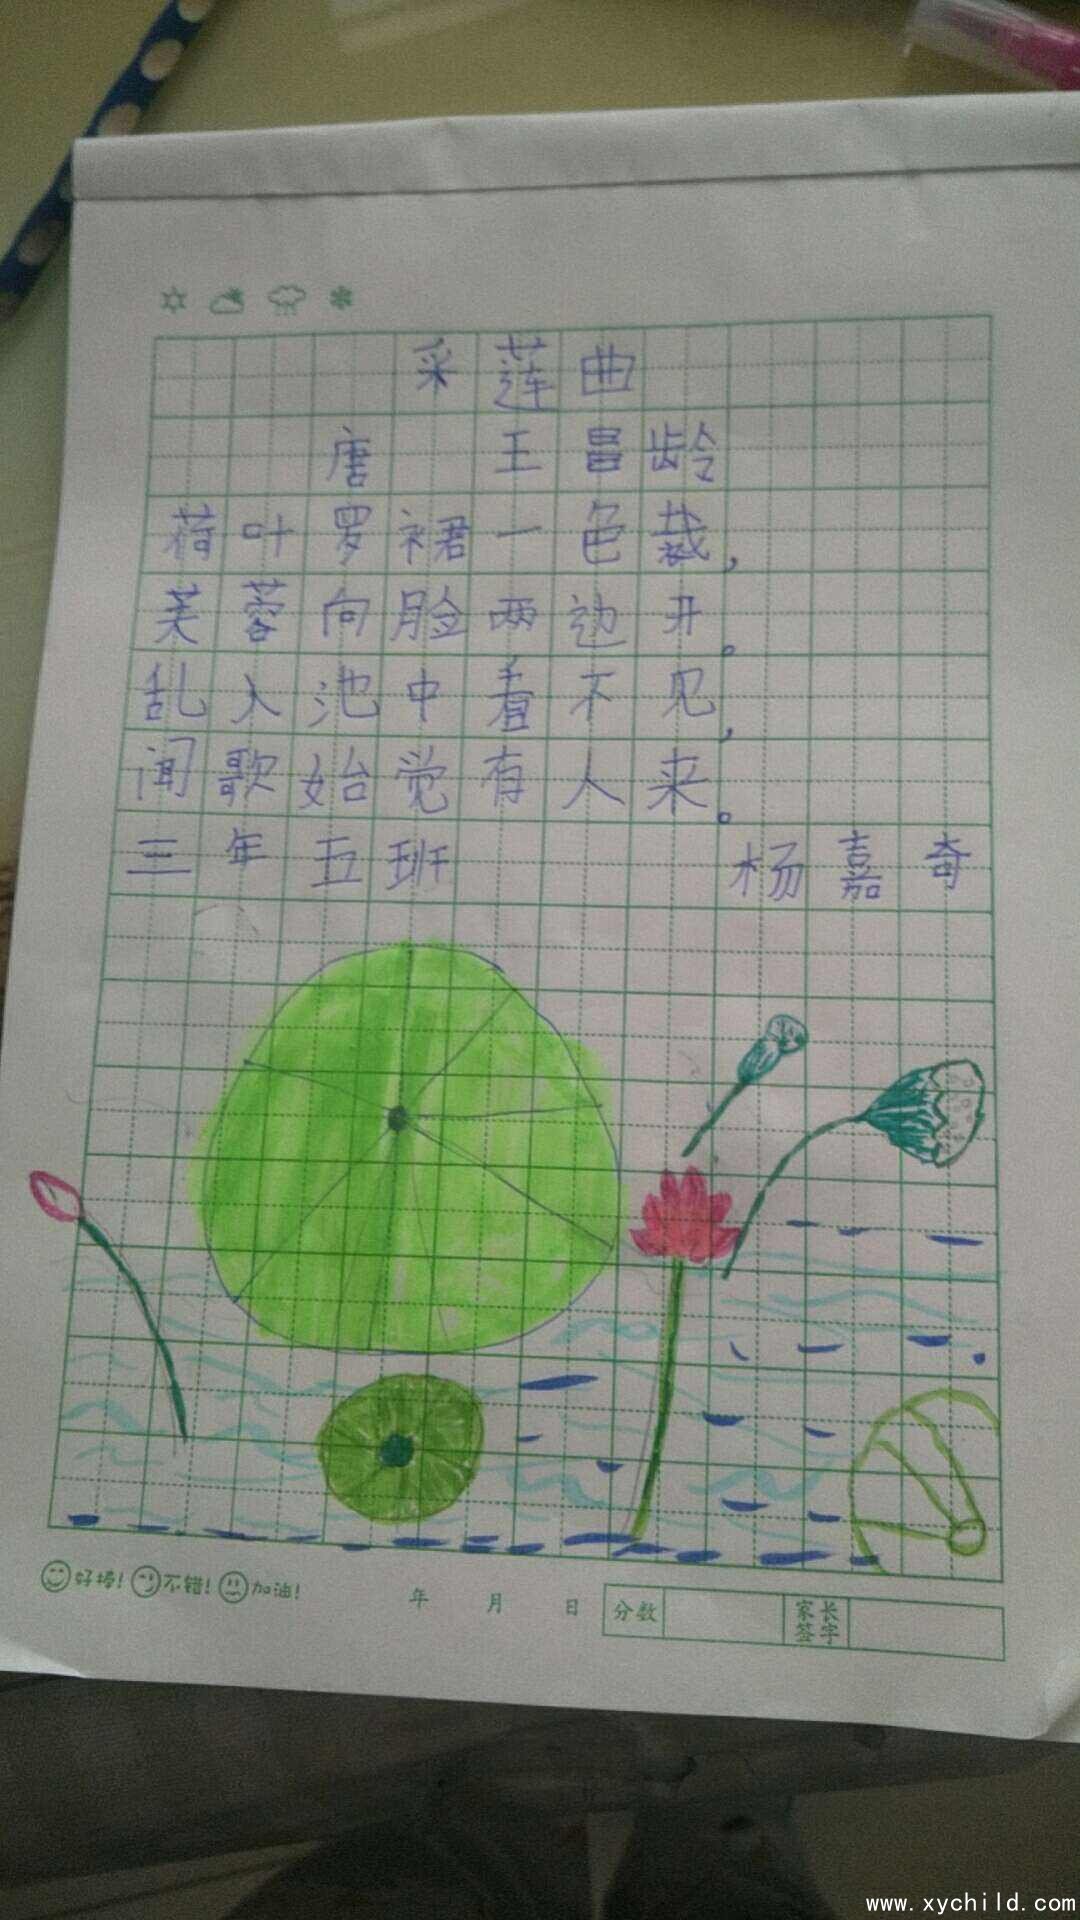 采莲曲
唐 王昌龄
荷叶罗裙一色裁，
芙蓉向脸两边开。
乱入池中看不见，
闻歌始觉有人来。
三年五班 杨嘉奇
好棒! 不错! 加油! 年 月 日 分数 家长签字
www.xychild.com